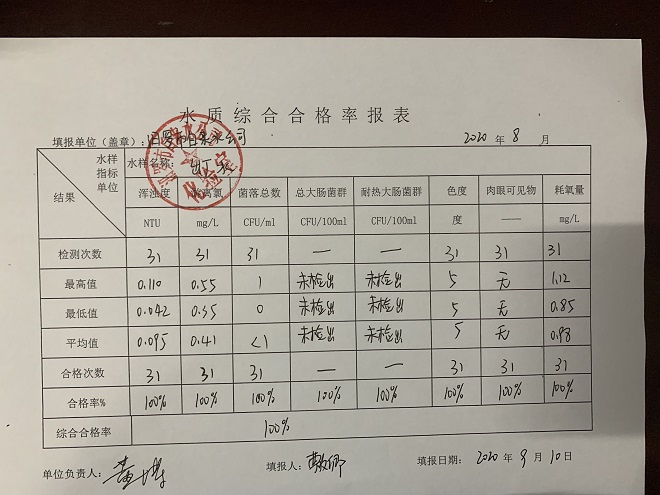 水质综合合格率报表
填报单位（盖章）：汨罗市自来水公司 2020 年 8 月
水样 水样名称： 出厂水
指标 浑浊度 游离氯 菌落总数 总大肠菌群 耐热大肠菌群 色度 肉眼可见物 耗氧量
单位
结果 NTU mg/L CFU/ml CFU/100ml CFU/100ml 度 —— mg/L
检测次数 31 31 31 — — 31 31 31
最高值 0.110 0.55 1 未检出 未检出 5 无 1.12
最低值 0.042 0.35 0 未检出 未检出 5 无 0.85
平均值 0.095 0.41 <1 未检出 未检出 5 无 0.98
合格次数 31 31 31 — — 31 31 31
合格率% 100% 100% 100% 100% 100% 100% 100% 100%
综合合格率 100%
单位负责人： 填报人： 填报日期： 2020 年 9 月 10 日